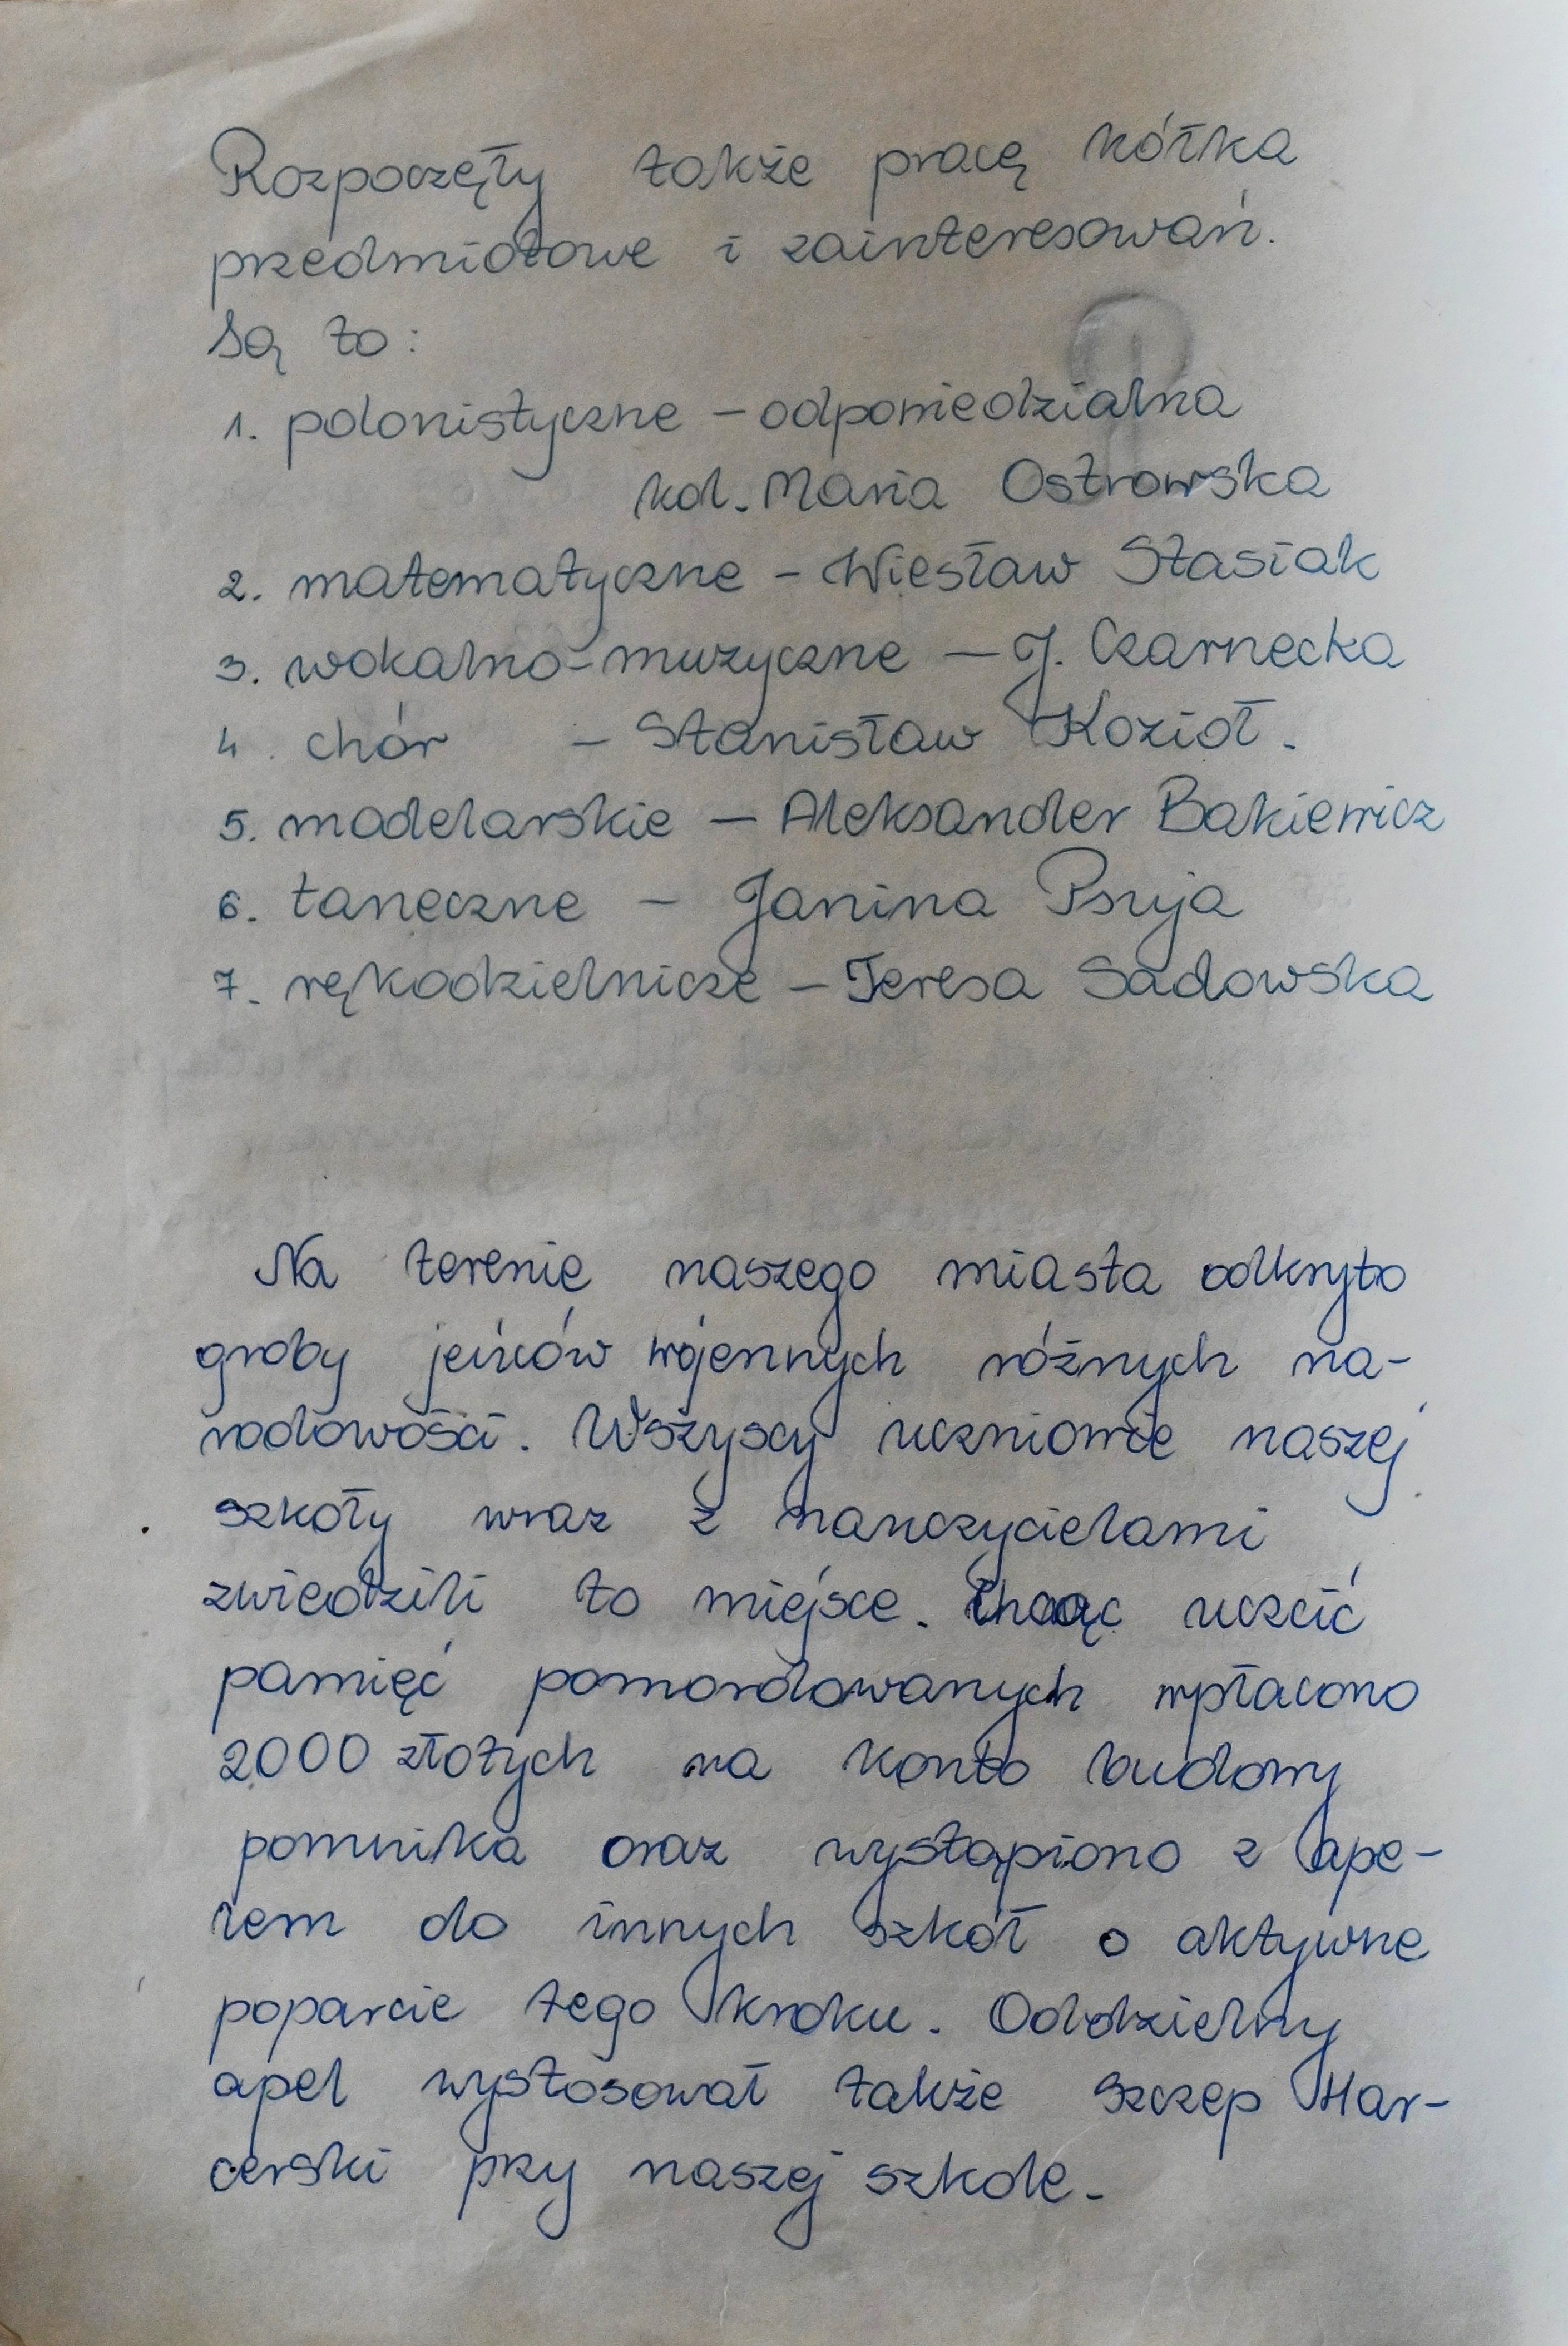 Rozpoczęły także pracę kółka
przedmiotowe i zainteresowań.
Są to:
1. polonistyczne – odpowiedzialna
kol. Maria Ostrowska
2. matematyczne – Wiesław Stasiak
3. wokalno-muzyczne – J. Czarnecka
4. chór – Stanisław Kozioł.
5. modelarskie – Aleksander Bakiewicz
6. taneczne – Janina Psuja
7. rękodzielnicze – Teresa Sadowska
Na terenie naszego miasta odkryto
groby jeńców wojennych różnych na-
rodowości. Wszyscy uczniowie naszej
szkoły wraz z nauczycielami
zwiedzili to miejsce. Chcąc uczcić
pamięć pomordowanych wpłacono
2000 złotych na konto budowy
pomnika oraz wystąpiono z ape-
lem do innych szkół o aktywne
poparcie tego kroku. Oddzielny
apel wystosował także Szczep Har-
cerski przy naszej szkole.